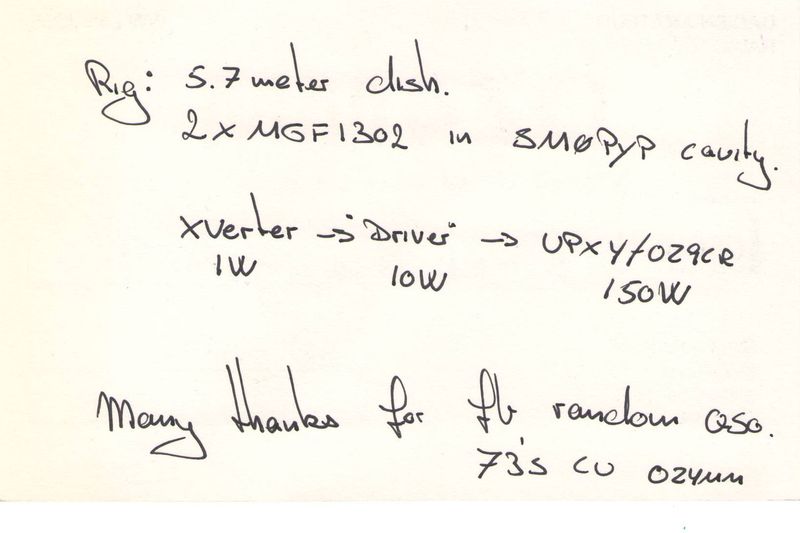 Rig: 5.7 meter dish.
2x MGF1302 in SMØPYP cavity.
XVerter → "Driver" → UPXY/OZ9CR
1W 10W 150W
Many thanks for fb random QSO.
73's CU OZ4MM